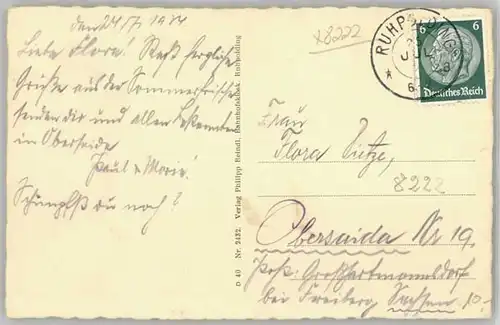 den 24/7. 1934
Liebe Flora! Recht herzliche
Grüße aus der Sommerfrische
senden dir und allen Bekannten
in Obersaida
Paul u. Marie.
Schimpfst du noch?
D 40 Nr. 2432. Verlag Philipp Reindl, Bahnhofskiosk, Ruhpolding
x8222
RUHPOLDING
JUL
6
6
Deutsches Reich
Frau
Flora Lietze,
8222
Obersaida Nr 19.
Post: Großhartmannsdorf
bei Freiberg, Sachsen
10-